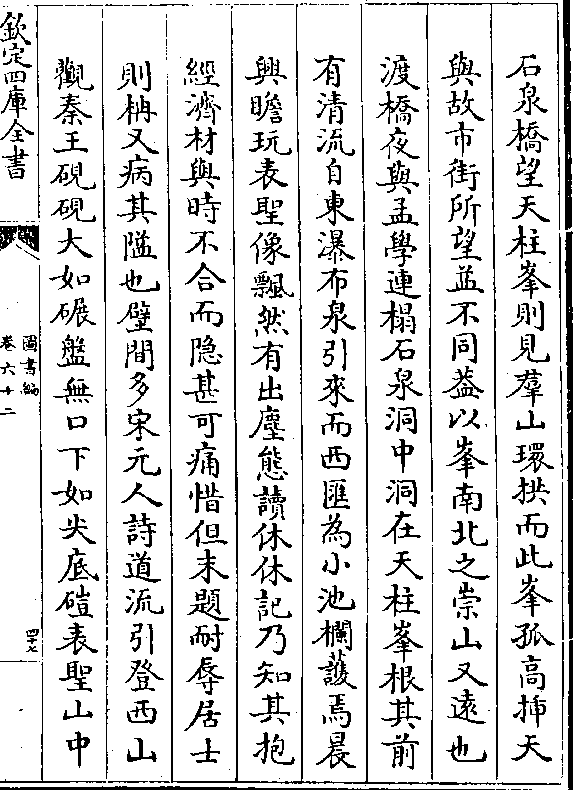 石泉橋望天柱峯則見羣山環拱而此峯孤高揷天
與故市街所望並不同葢以峯南北之崇山又遠也
渡橋夜與孟學連榻石泉洞中洞在天柱峯根其前
有清流自東瀑布泉引來而西匯為小池欄䕶焉晨
興瞻玩表聖像飄然有出塵態讀休休記乃知其抱
經濟材與時不合而隐甚可痛惜但末題耐辱居士
則枘又病其隘也壁間多宋元人詩道流引登西山
觀秦王硯硯大如碾盤無口下如尖底磑表聖山中
欽定四庫全書
圖書編
卷六十二
四十七